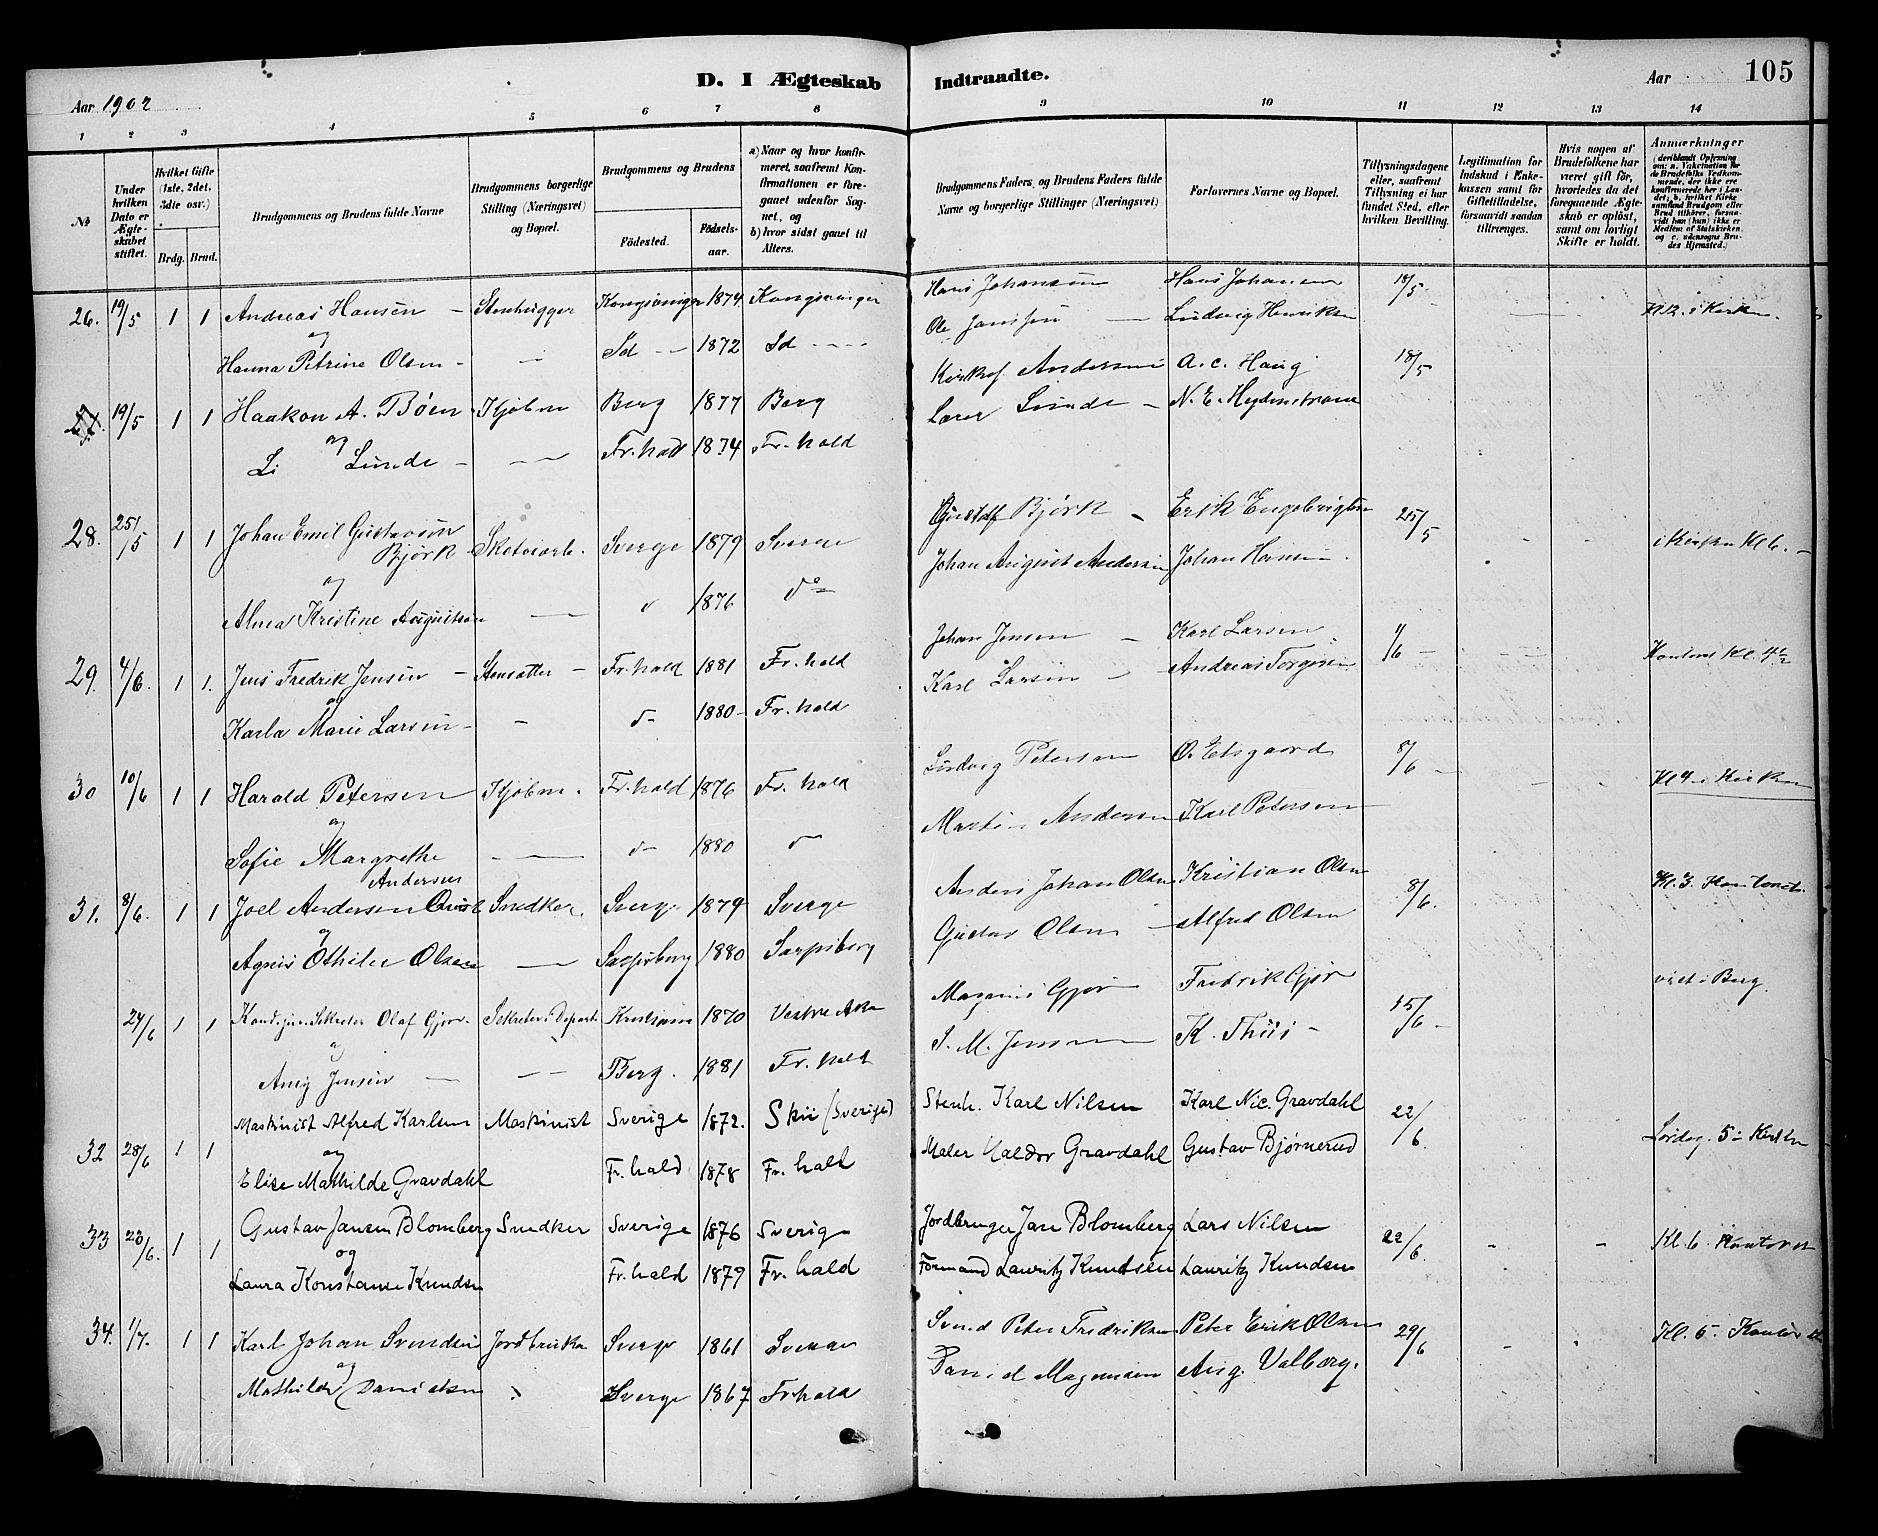 D. I Ægteskab Indtraadte.
105
Aar 1902
Aar
1 2 3 4 5 6 7 8 9 10 11 12 13 14
№
Under hvilken Dato er Ægteskabet stiftet.
Hvilket Gifte (1ste, 2det, 3die osv.)
Brdg. Brud.
Brudgommens og Brudens fulde Navne
Brudgommens borgerlige Stilling (Næringsvei) og Bopæl.
Brudgommens og Brudens
Födested.
Födselsaar.
a) Naar og hvor konfirmeret, saafremt Konfirmationen er foregaaet udenfor Sognet, og
b) hvor sidst gaaet til Alters.
Brudgommens Faders, og Brudens Faders fulde Navne og borgerlige Stillinger (Næringsvei)
Forlovernes Navne og Bopæl.
Tillysningsdagene eller, saafremt Tillysning ei har fundet Sted, efter hvilken Bevilling.
Legitimation for Indskud i Enkekassen samt for Giftetilladelse, forsaavidt saadan tiltrænges.
Hvis nogen af Brudefolkene har været gift før, hvorledes da det foregaaende Ægteskab er opløst, samt om lovligt Skifte er holdt.
Anmærkninger
(deriblandt Oplysning om: a. Vakcination for de Brudefolks Vedkommende, der ikke ere konfirmerede her i Landet; b. hvilket Kirkesamfund Brudgom eller Brud tilhører, forsaavidt han (hun) ikke er Medlem af Statskirken, og c. udensogns Brudes Hjemsted.)
26. 19/5 1 1 Andreas Hansen – Stenhugger Kongsvinger 1874 Kongsvinger Hans Johansen Hans Johansen 18/5
og Ole Ludvig Henriksen Kl 2. i Kirken
Hanna Petrine Olsen – Id 1872 Id
27. 19/5 1 1 Haakon A. Bøen Kjøbm Berg 1877 Berg Andersen A. C. Haug 18/5
og Lærer Lunde – N. E.
Li Lunde – Fr.hald 1874 Fr.hald
28. 25/5 1 1 Johan Emil Gustavsen Gustaf Björk Erik 25/5
Björk Sverge 1879 Sverge Johan August Andersen Johan Hansen i Kirken Kl 6.
og
Alma Kristine Augustsen d 1876 do
29. 4/6. 1 1. Jens Fredrik Jensen – Fr.hald 1881 Fr.hald Johan Jensen – Karl Larsen 1/6
og Karl Larsen Andreas Kl. 4½
Karla Marie Larsen – d– 1880 Fr.hald
30 10/6 1 1 Harald Petersen Kjøbm. Fr.hald 1876 Fr.hald Ludvig Petersen 8/6
og Martin Andersen Karl Petersen Kl 4 i Kirken
Sofie Margrethe Andersen d– 1880 d
31. 8/6. 1 1 Joel Andersen Snedker Sverge 1879 Sverge Anders Johan Olsen Kristian Olsen 8/6. Kl. 3.
og Gustav Olsen – Alfred Olsen
Agnes Othilie Olsen Sarpsborg 1880 Sarpsborg
24/6 1 1 Kand. jur. Sekretær Olaf Gjør. Sekretær i Depart. Kristiania 1870 Vestre Aker Magnus Gjør Fredrik Gjør 15/6 viet i Berg.
og S. M. Jensen K. Thiis –
Jensen Berg. 1881 Fr.hald
32 28/6 1 1 Maskinist Alfred Karlsen Maskinist Sverige 1872. (Sverige) Stenh. Karl Nilsen Karl Nic. Gravdahl 22/6. Lørdag. 5 i Kirken
og Maler Haldor Gravdahl Gustav Bjørnerud
Elise Mathilde Gravdahl Fr.hald 1878 Fr.hald
33 28/6. 1 1 Gustav Jansen Blomberg Snedker Sverige 1876 Sverige Jordbruger Jan Blomberg Lars Nilsen 22/6. Kl. 6. Kontoret
og Formand Lauritz Knudsen Lauritz Knudsen
Laura Konstanse Knudsen Fr.hald 1879 Fr.hald
34. 1/7. 1 1 Karl Johan Svendsen Jordbruker Sverge 1861 Svend Peter Fredriksen Peter Erik Olsen 29/6 Kl. 5. Kontoret
og Daniel Magnussen Aug. Valberg.
Mathilde Danielsen Sverge 1867 Fr.hald